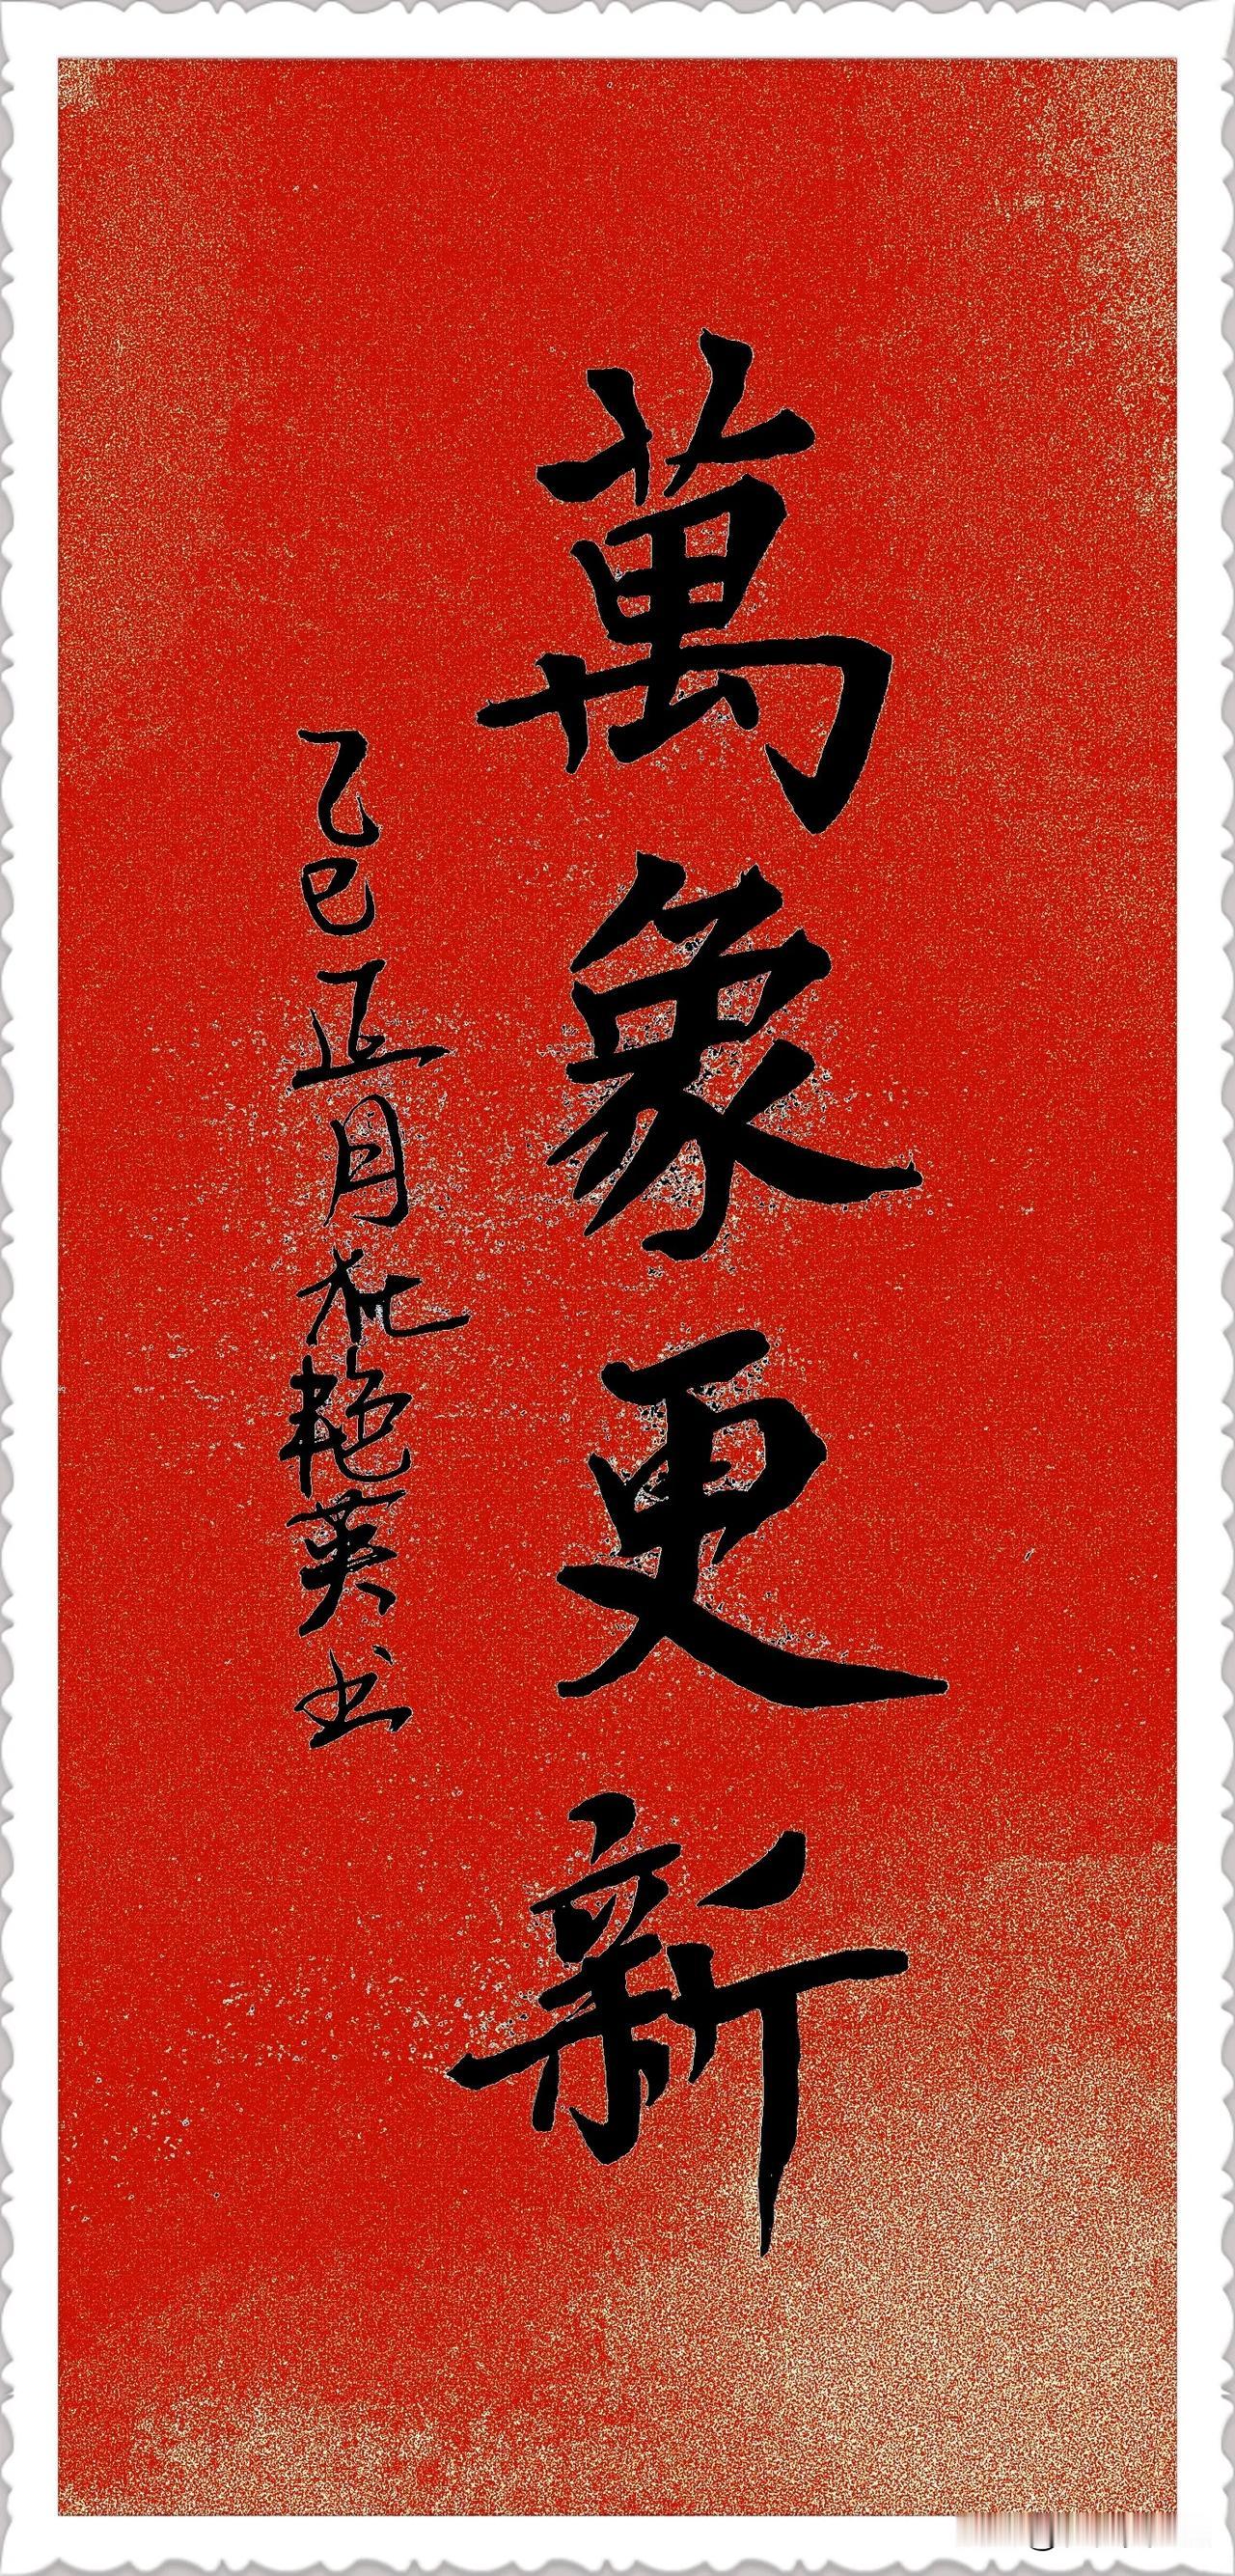 萬象更新
乙巳正月艳英书